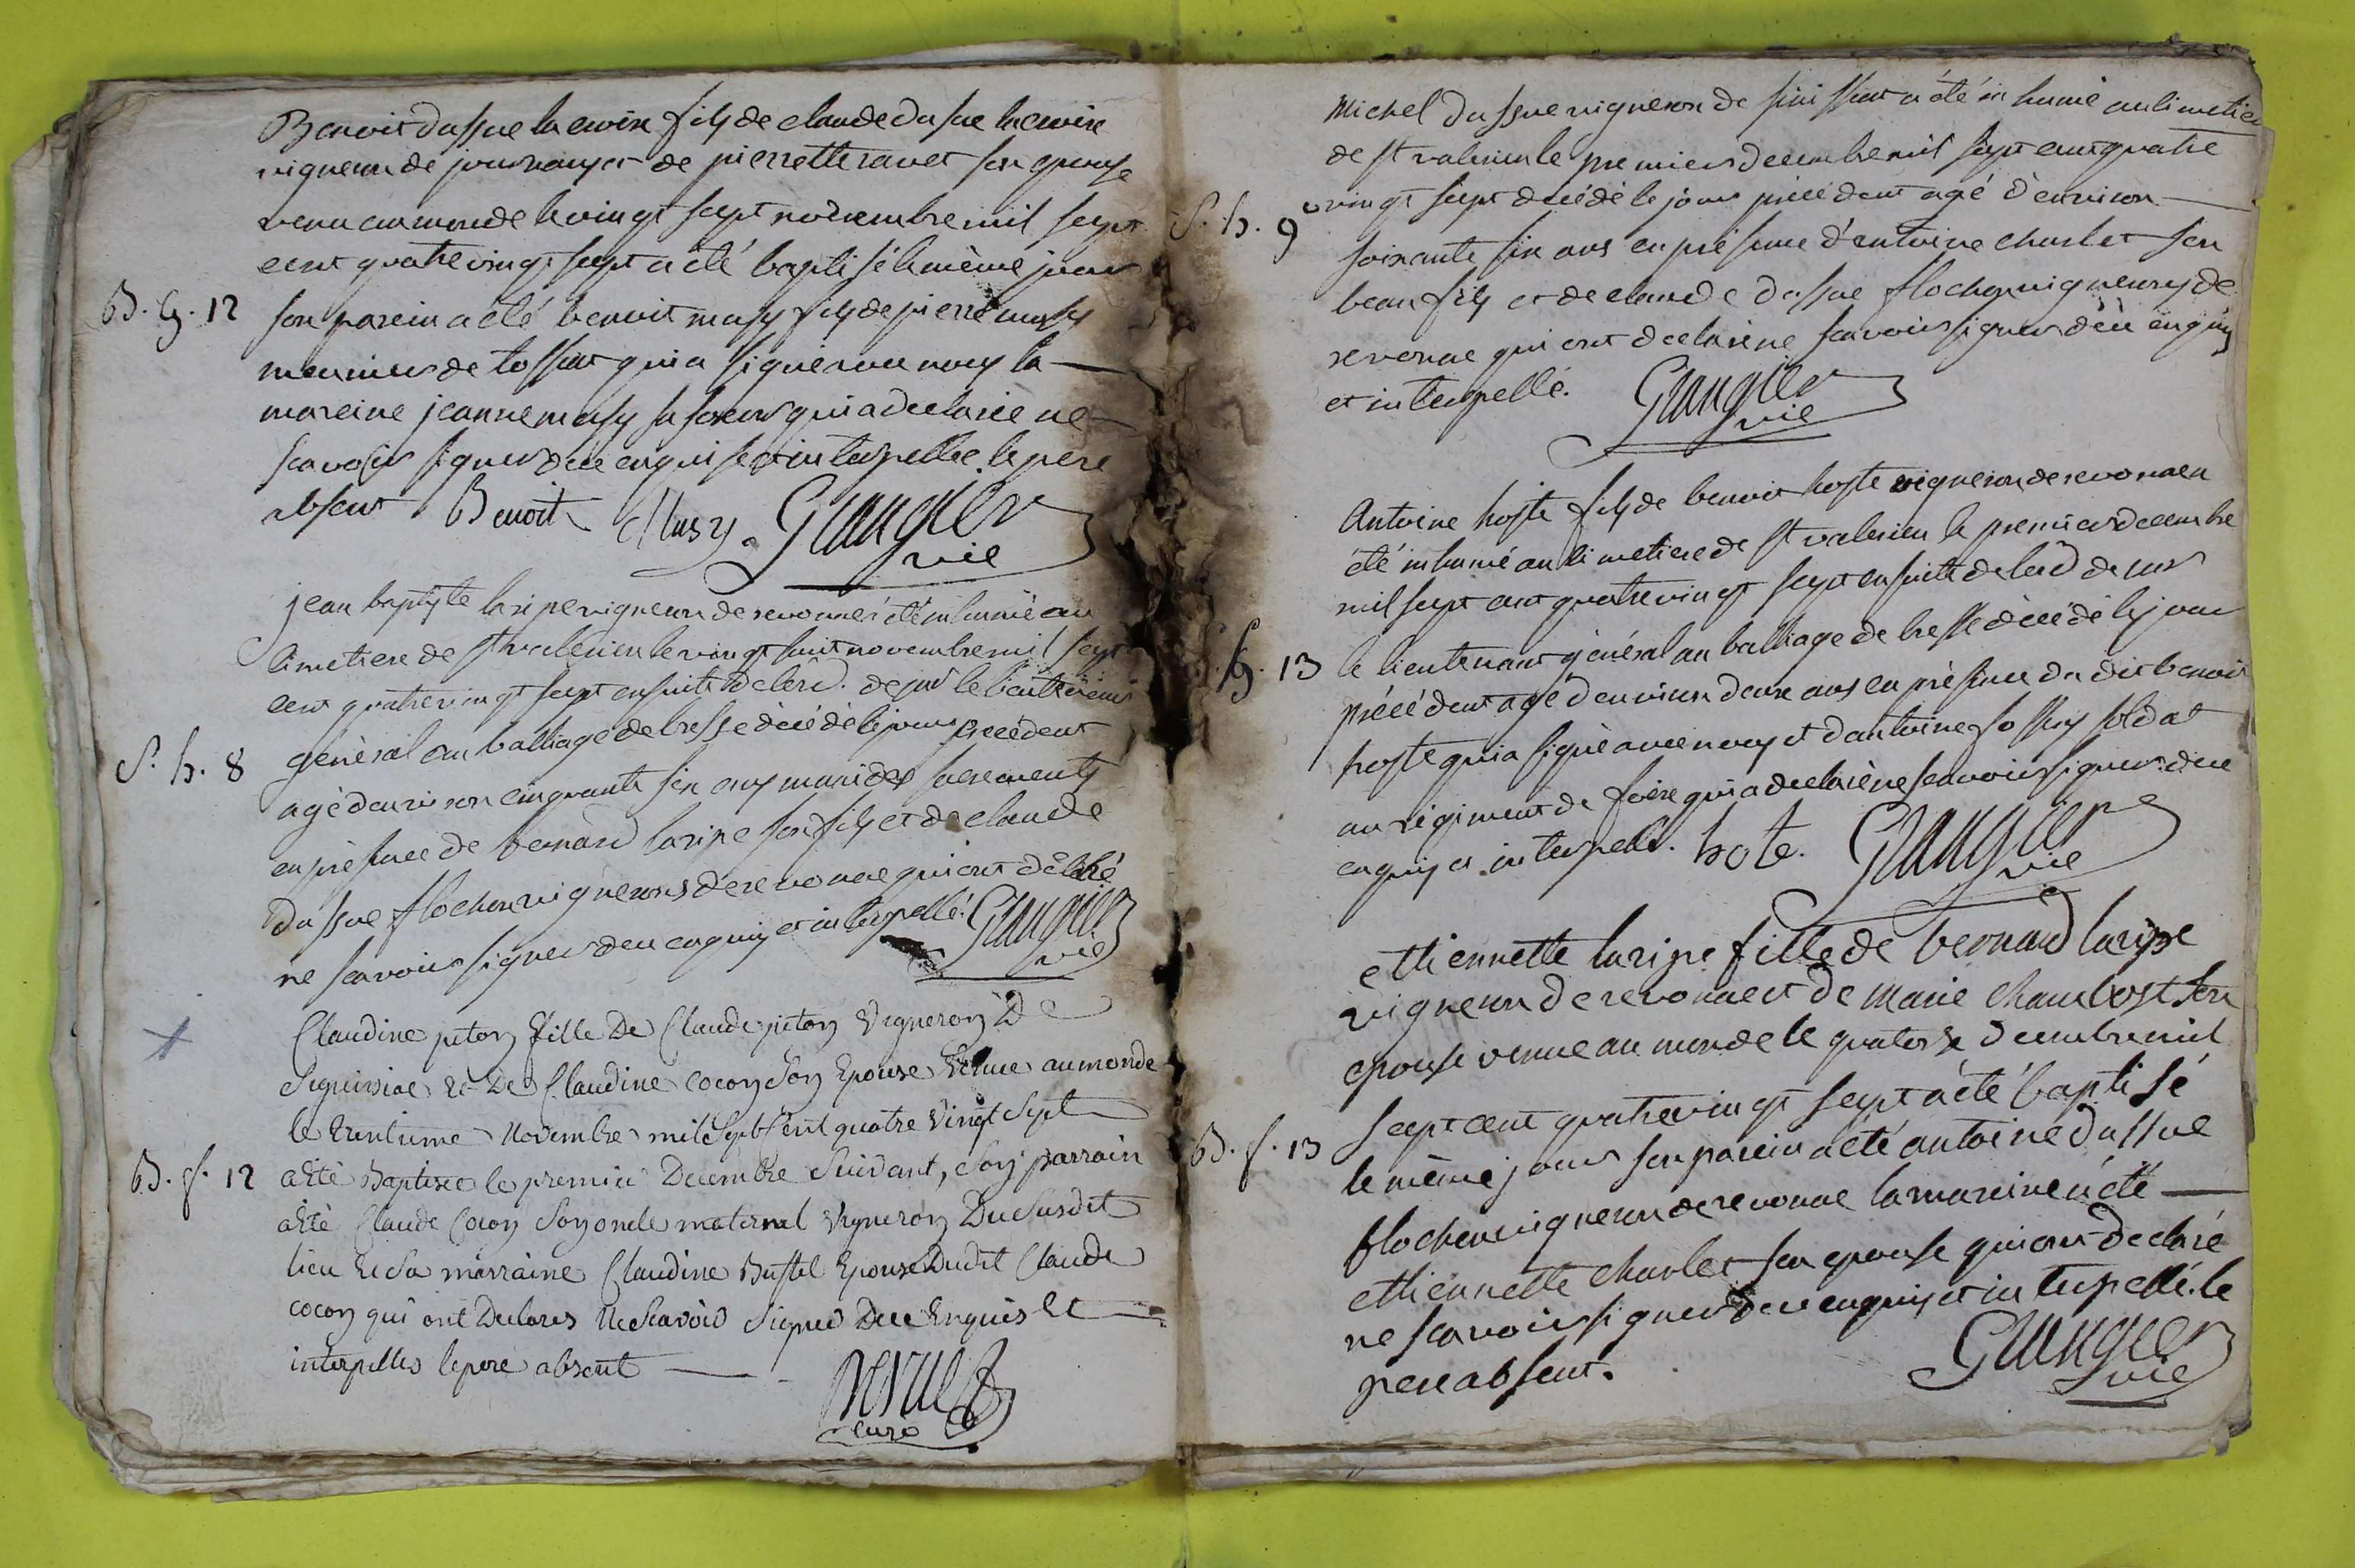 Benoit dussue lacroix fils de claude dusue lacroix
vigneron de journans et de pierrette ravet son epouse
venu au monde le vingt sept novembre mil sept
cent quatre vingt sept a été baptisé le même jour
B. g. 12
son parein a été benoit musy fils de pierre musy
meunier de tossiat qui a signé avec nous la
mareine jeanne musy sa soeur qui a declaré ne
scavoir signer de ce enquise et interpellée. le pere
absent. Benoit Musy. Grangier
vic
jean baptiste laripe vigneron de revonna a été inhumé au
cimetiere de st valerien le vingt huit novembre mil sept
cent quatre vingt sept ensuite de l'ord. de mr le lieutenant
S. h. 8
général au balliage de bresse décédé le jour precedent
agé denviron cinquante six ans muni des sacrements
en présence de bernard laripe son fils et de claude
dussue flochon vignerons de revonna qui ont déclaré
ne scavoir signer de ce enquis et interpellé. Grangier
vic
Claudine piton fille De Claude piton Vigneron De
Seguissiac Et De Claudine cocon Son Epouse Venue au monde
le trentieme Novembre mile Sept Cent quatre Vingt Sept
B. f. 12
a Eté Baptisee le premier Decembre Suivant, Son parrain
a Eté Claude Cocon Son oncle maternel Vigneron Du Susdit
lieu Et Sa marraine Claudine Epouse Dudit Claude
cocon qui ont Declarés Ne Scavoir Signer De ce Enquis Et
interpellés le pere absent
curé
Michel dussue vigneron de sinissiat a été inhumé au cimetiere
de st valerien le premier decembre mil sept cent quatre
S. h. 9
vingt sept decédé le jour précédent agé d'environ
soixante six ans en présence d'antoine charlet son
beau fils et de claude dussue flochon vignerons de
revonna qui ont declaré ne scavoir signer de ce enquis
et interpellé. Grangier
vic
Antoine hoste fils de benoit hoste vigneron de revonna a
été inhumé au cimetiere de st valerien le premier decembre
mil sept cent quatre vingt sept ensuite de l'ord de mr
S. g. 13
le lieutenant général au balliage de bresse décédé le jour
précédent agé denviron deux ans en présence du dit benoit
hoste qui a signé avec nous et d'antoine soldat
au régiment de foire qui a declaré ne scavoir signer de ce
enquis et interpellé. hote. Grangier
vic
etiennette laripe fille de bernard laripe
vigneron de revonna et de marie chambost son
epouse venue au monde le quatorze decembre mil
sept cent quatre vingt sept a été baptisé
B. f. 13
le même jour son parein a été antoine dussue
flochon vigneron de revonna la mareine a été
etiennette charlet son epouse qui ont declaré
ne scavoir signer de ce enquis et interpellé. le
pere absent. Grangier
vic